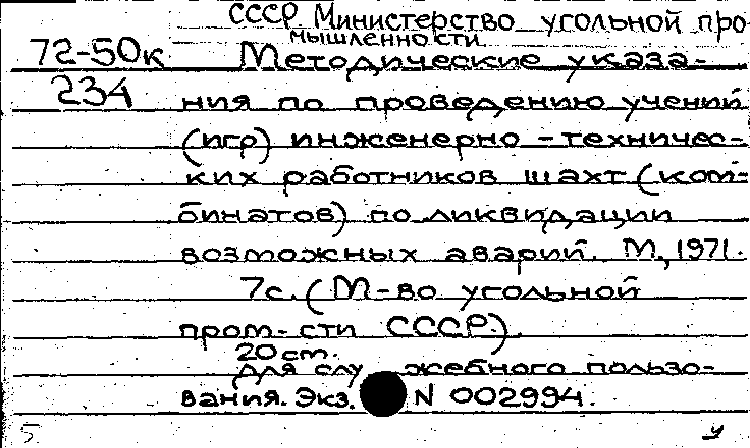 СССР. Министерство угольной про
мышленности
72-50к Методические указа-
234 ния по проведению учений
(игр) инженерно-техничес-
ких работников шахт (ком-
бинатов) по ликвидации
возможных аварий. М, 1971.
7с. (М-во угольной
пром-сти СССР.)
20 cm.
Для служебного пользо-
вания. Экз. N 002994.
5 У